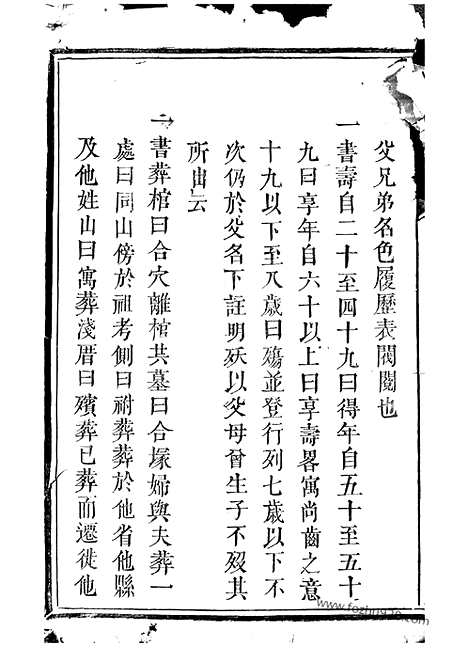 父兄弟名色履歷表閥閱也
一書壽自二十至四十九曰得年自五十至五十
九曰享年自六十以上曰享壽畧寓尚齒之意
十九以下至八歲曰殤並登行列七歲以下不
次仍於父名下註明殀以父母曾生子不歿其
所由云
一書葬棺曰合穴離棺共墓曰合塚婦與夫葬一
處曰同山傍於祖考側曰祔葬葬於他省他縣
及他姓山曰寓葬淺厝曰殯葬已葬而遷徙他